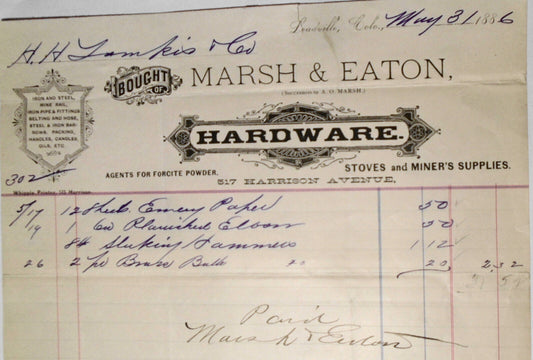 Leadville, Colo., May 31 1886
H. H. & Co
BOUGHT OF
MARSH & EATON,
(Successors to A. O. MARSH.)
IRON AND STEEL,
MINE RAIL,
IRON PIPE & FITTINGS
BELTING AND HOSE,
STEEL & IRON BARROWS, PACKING,
HANDLES, CANDLES,
OILS, ETC.
HARDWARE.
302
AGENTS FOR FORCITE POWDER.
STOVES and MINER'S SUPPLIES.
517 HARRISON AVENUE,
Whipple, Printer, Harrison
5/17 12 Sheets Emery Paper 50
19 1 Elbow 50
8# Hammers 1 12
26 2 20 20 2.32
Paid
Marsh & Eaton